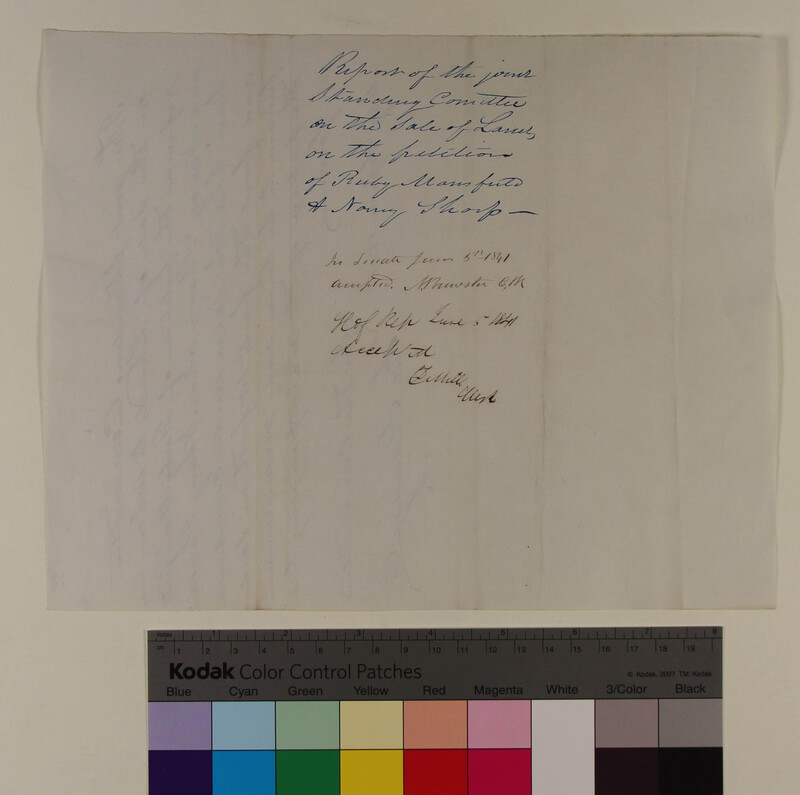 Report of the joint
Standing Comittee
on the Sale of Lands
on the petition
of Ruby Mansfield
& Nancy Sharp —
In Senate June 5th 1841
accepted. Brewster Clk
H of Rep June 5 1841
Accepted
Clerk
inches 1 2 3 4 5 6 7 8
cm 1 2 3 4 5 6 7 8 9 10 11 12 13 14 15 16 17 18 19
Kodak Color Control Patches
© Kodak, 2007 TM: Kodak
Blue Cyan Green Yellow Red Magenta White 3/Color Black